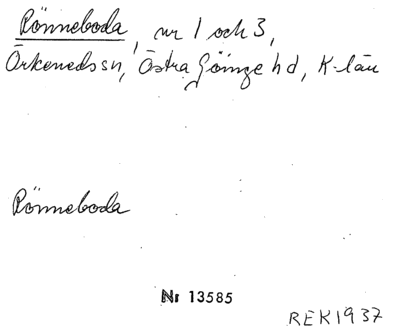 Rönneboda, nr 1 och 3,
Örkeneds sn, Östra Göinge hd, K-län
Rönneboda
Nr 13585
REK1937